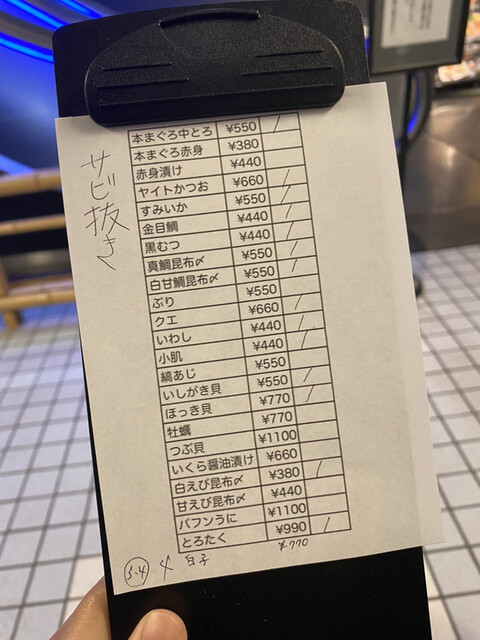 サビ抜き
本まぐろ中とろ ¥550 /
本まぐろ赤身 ¥380
赤身漬け ¥440
ヤイトかつお ¥660 /
すみいか ¥550 /
金目鯛 ¥440 /
黒むつ ¥440 /
真鯛昆布〆 ¥550 /
白甘鯛昆布〆 ¥550
ぶり ¥550
クエ ¥660 /
いわし ¥440 /
小肌 ¥440 /
縞あじ ¥550
いしがき貝 ¥550 /
ほっき貝 ¥770 /
牡蠣 ¥770
つぶ貝 ¥1100
いくら醤油漬け ¥660
白えび昆布〆 ¥380 /
甘えび昆布〆 ¥440
バフンうに ¥1100
とろたく ¥990 /
白子 ¥770